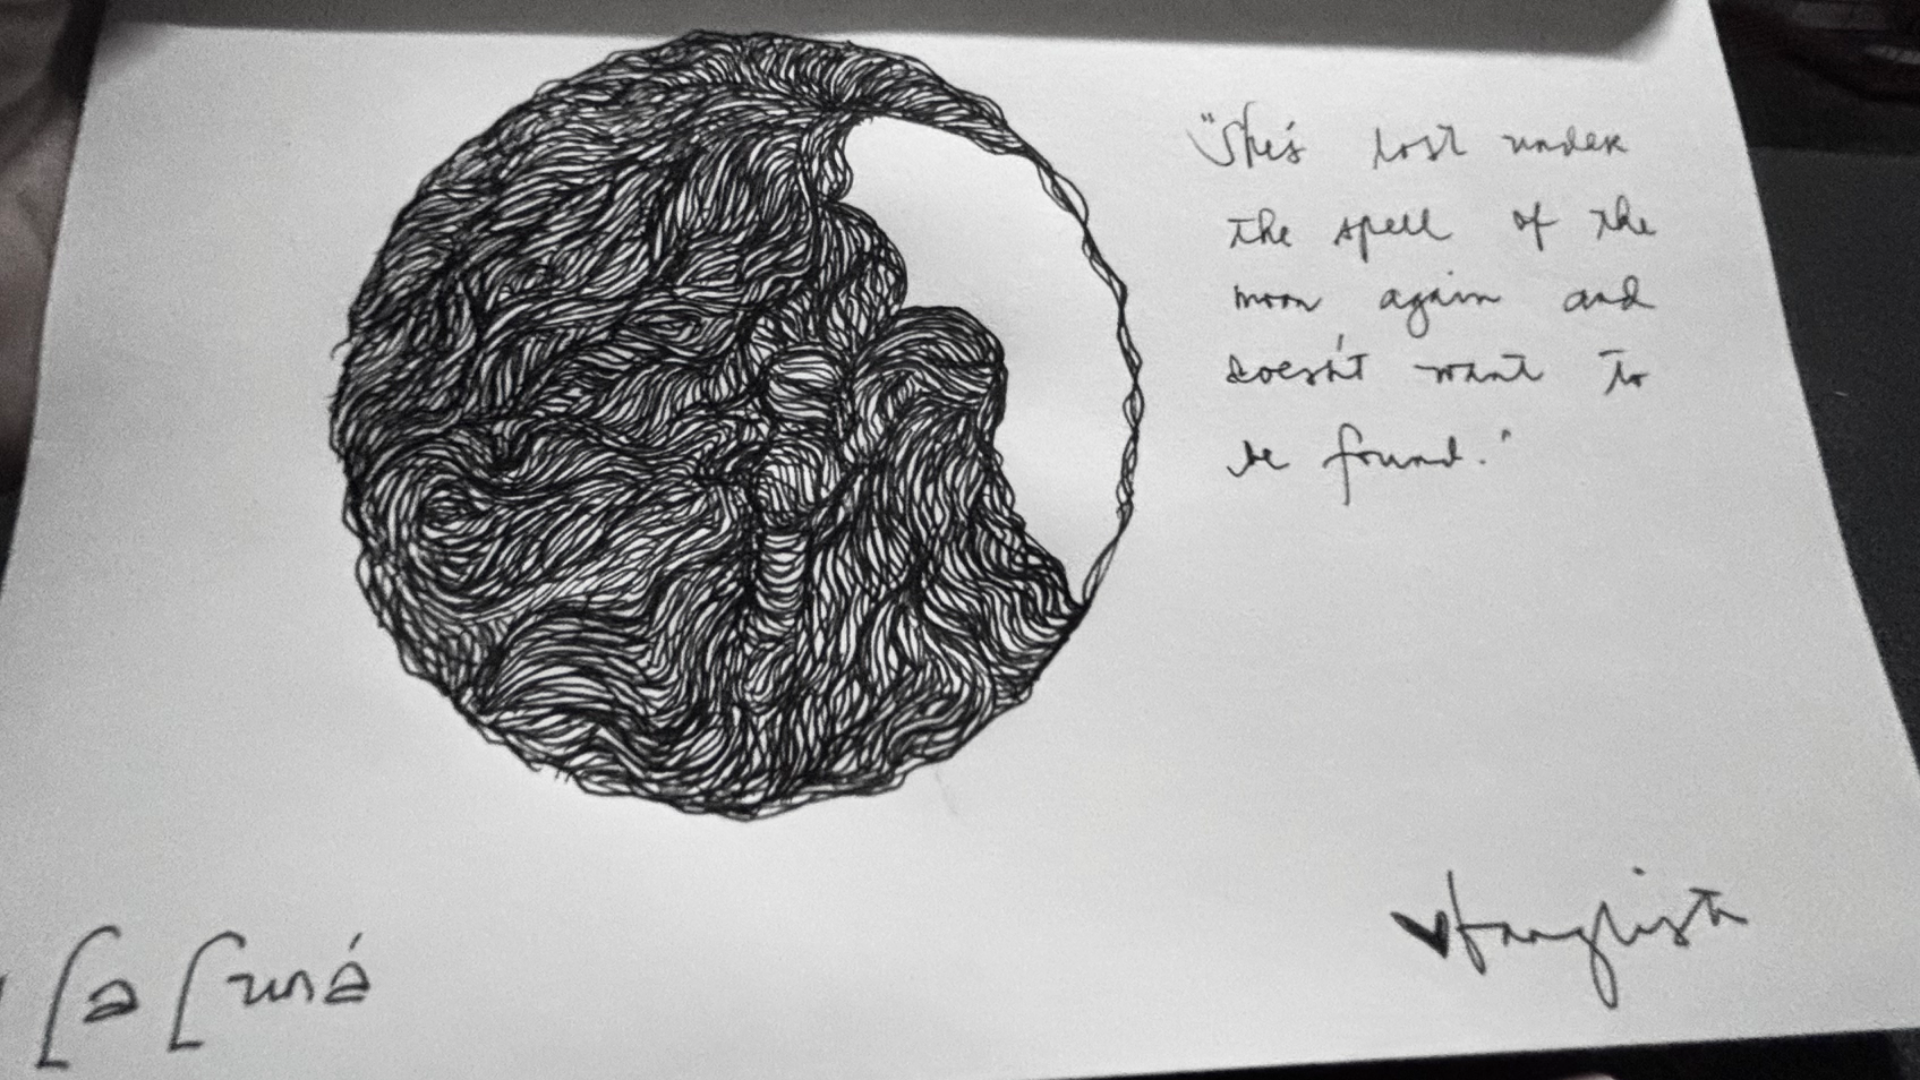 "She's lost under
the spell of the
moon again and
doesn't want to
be found."
La Luná